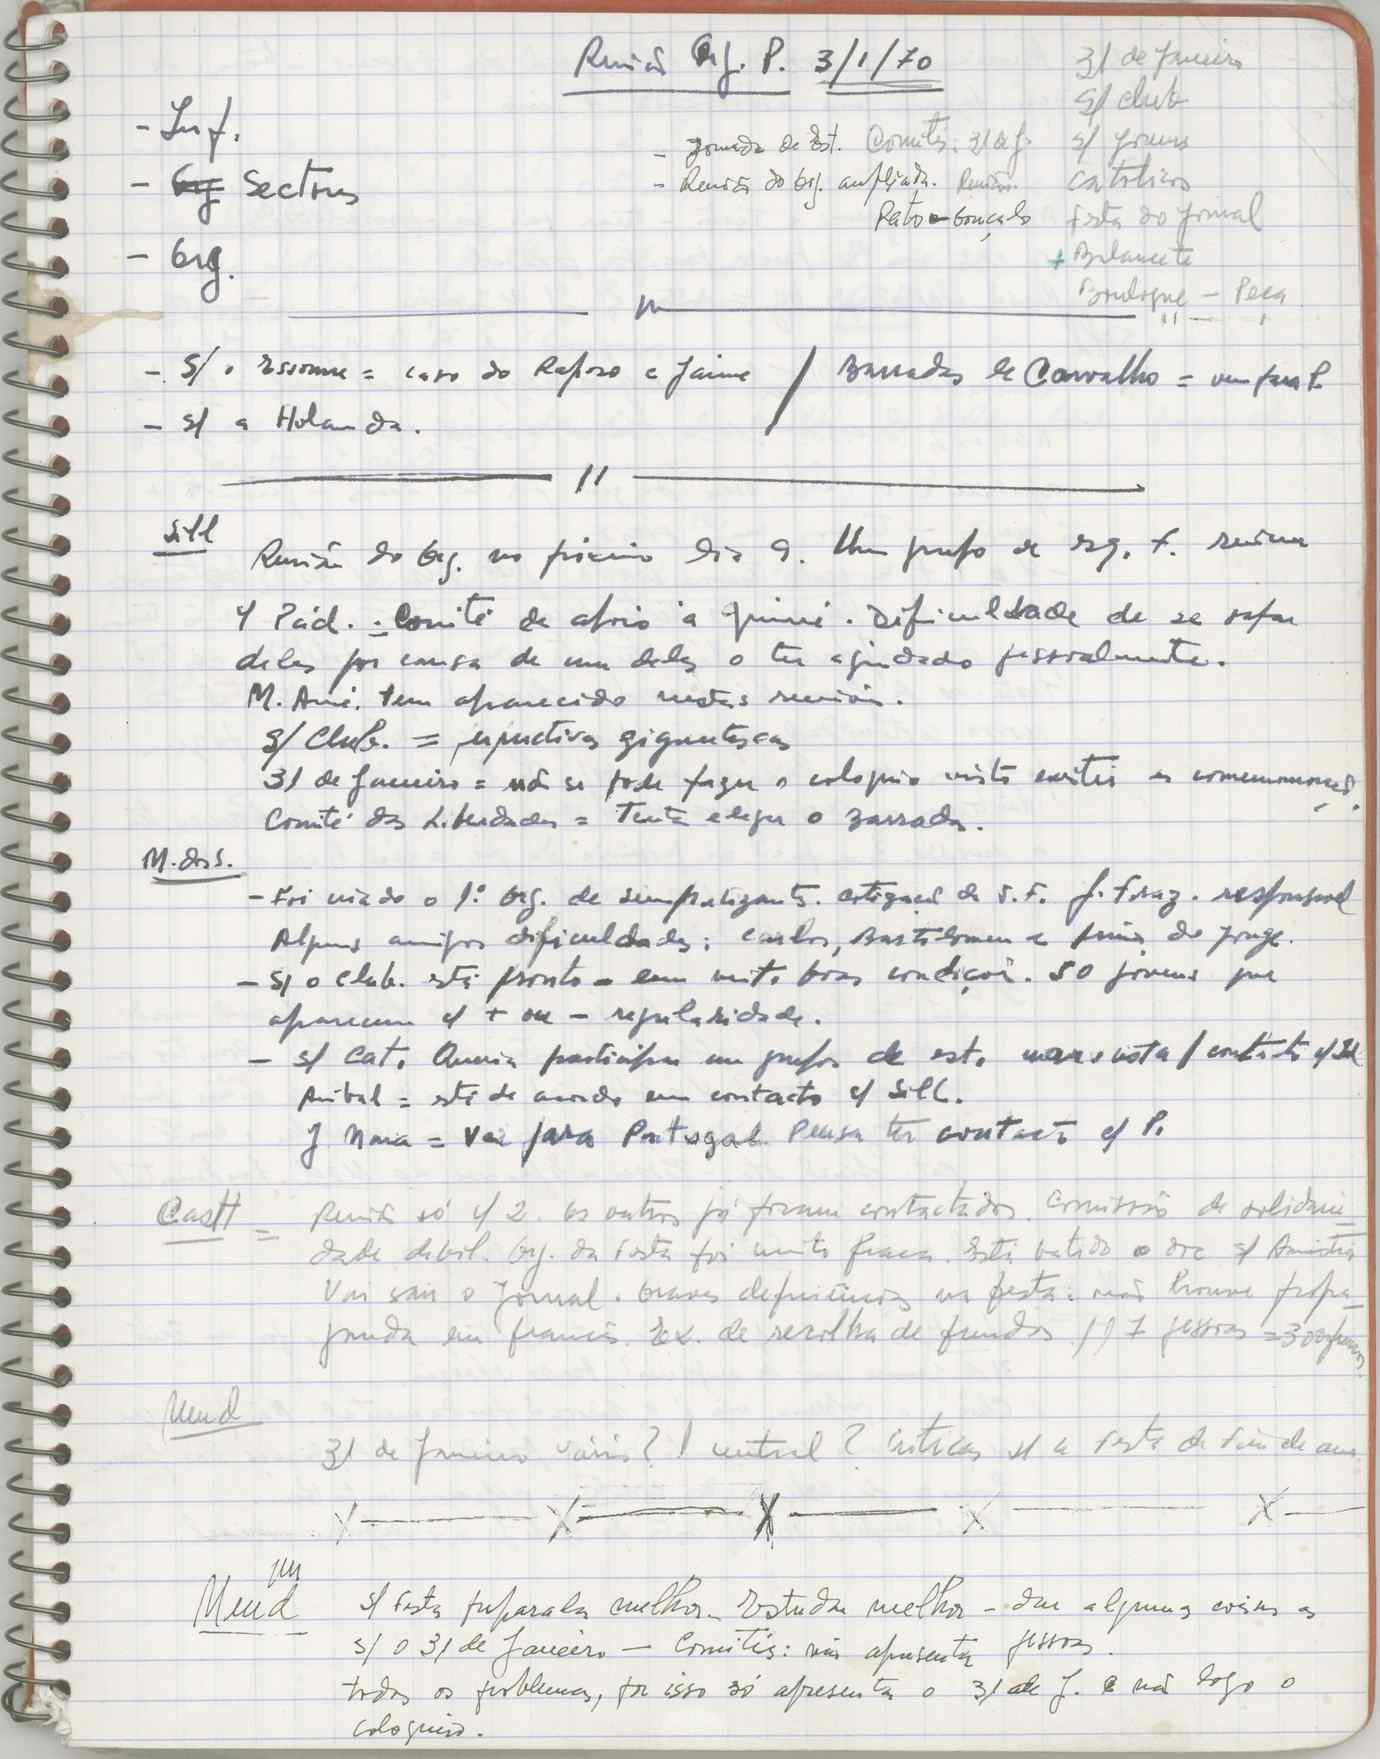 Reunião Org. P. 3/1/70
31 de Janeiro
s/ club
s/ jovens
Católicos
Festa do Jornal
+ Balancete
Boulogne - Peça
- Inf.
- Org Sectores
- Org.
- Jornada de Est. Comités: 31 de J.
- Reunião do Org. ampliada. Reunião
Pato - Gonçalo
- S/ o Essonne = caso do Raposo e Jaime / Barradas de Carvalho = vem para P.
- S/ a Holanda.
Sill
Reunião do Org. no próximo dia 9. Um grupo de esq. f. reúne
c/ Pád. - Comité de apoio à Guiné. Dificuldade de se safar
deles por causa de um deles o ter ajudado pessoalmente.
M. Ant. tem aparecido nestas reuniões.
S/ Club. = perspectivas gigantescas
31 de Janeiro = não se pode fazer o colóquio visto existir as comemorações.
Comité das Liberdades = Tenta eleger o Barradas.
M. dos S.
- Foi criado o 1º Org. de simpatizantes. J. Ferraz. responsável
Alguns amigos dificuldades: Carlos, Bartolomeu e primo do Jorge.
- S/ o Club. está pronto - em muito boas condições. 50 jovens que
aparecem c/ + ou - regularidade.
- S/ Cat. Queria participar em grupos de est. marxista / contacto c/
Aníbal = está de acordo em contacto c/ Sill.
J Maria = Vai para Portugal. Pensa ter contacto c/ P.
Cast =
Reunião só c/ 2. Os outros já foram contactados. Comissão de solidarie-
dade débil. Org. da Festa foi muito fraca. Está batido o doc s/ Amnistia
Vai sair o Jornal. Graves deficiências na festa: não houve propa-
ganda em francês. Ex. de recolha de fundos // 7 pessoas = 300 francos.
Mend
31 de Janeiro vários? 1 central? Críticas s/ a Festa de Fim de ano.
Mend
S/ Festa preparada melhor - Estudar melhor - dar algumas coisas as
pessoas.
S/ o 31 de Janeiro - Comités: não apresentar
todos os problemas, por isso só apresentar o 31 de J. e não logo o
colóquio.